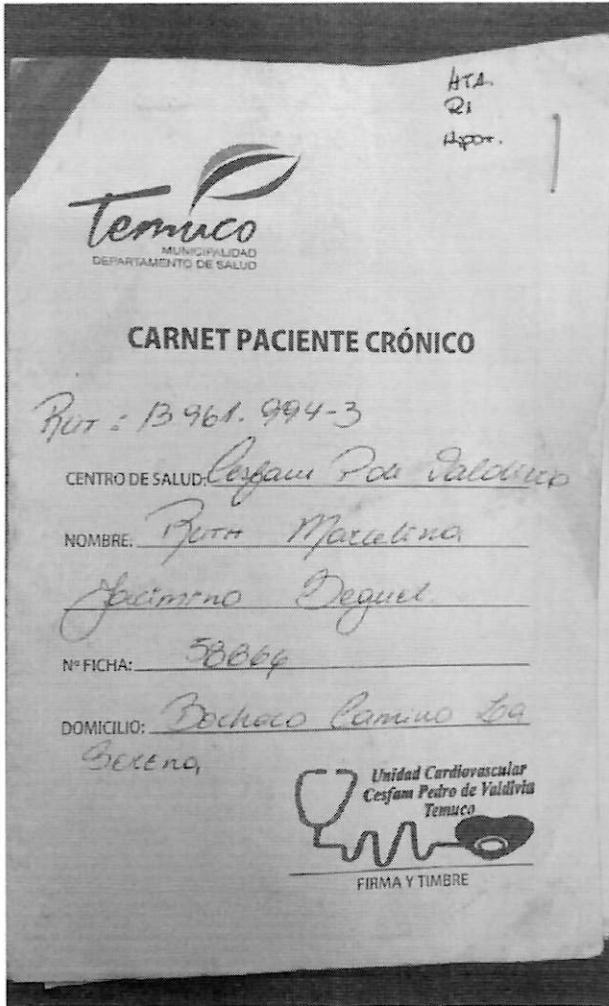 HTA.
RI
Hipot.
Temuco
MUNICIPALIDAD
DEPARTAMENTO DE SALUD
CARNET PACIENTE CRÓNICO
RUT: 13 961. 994-3
CENTRO DE SALUD: Cesfam Pdu Valdivia
NOMBRE: RUTH Marcelina
N° FICHA: 58866
DOMICILIO: Camino La
Serena
Unidad Cardiovascular
Cesfam Pedro de Valdivia
Temuco
FIRMA Y TIMBRE